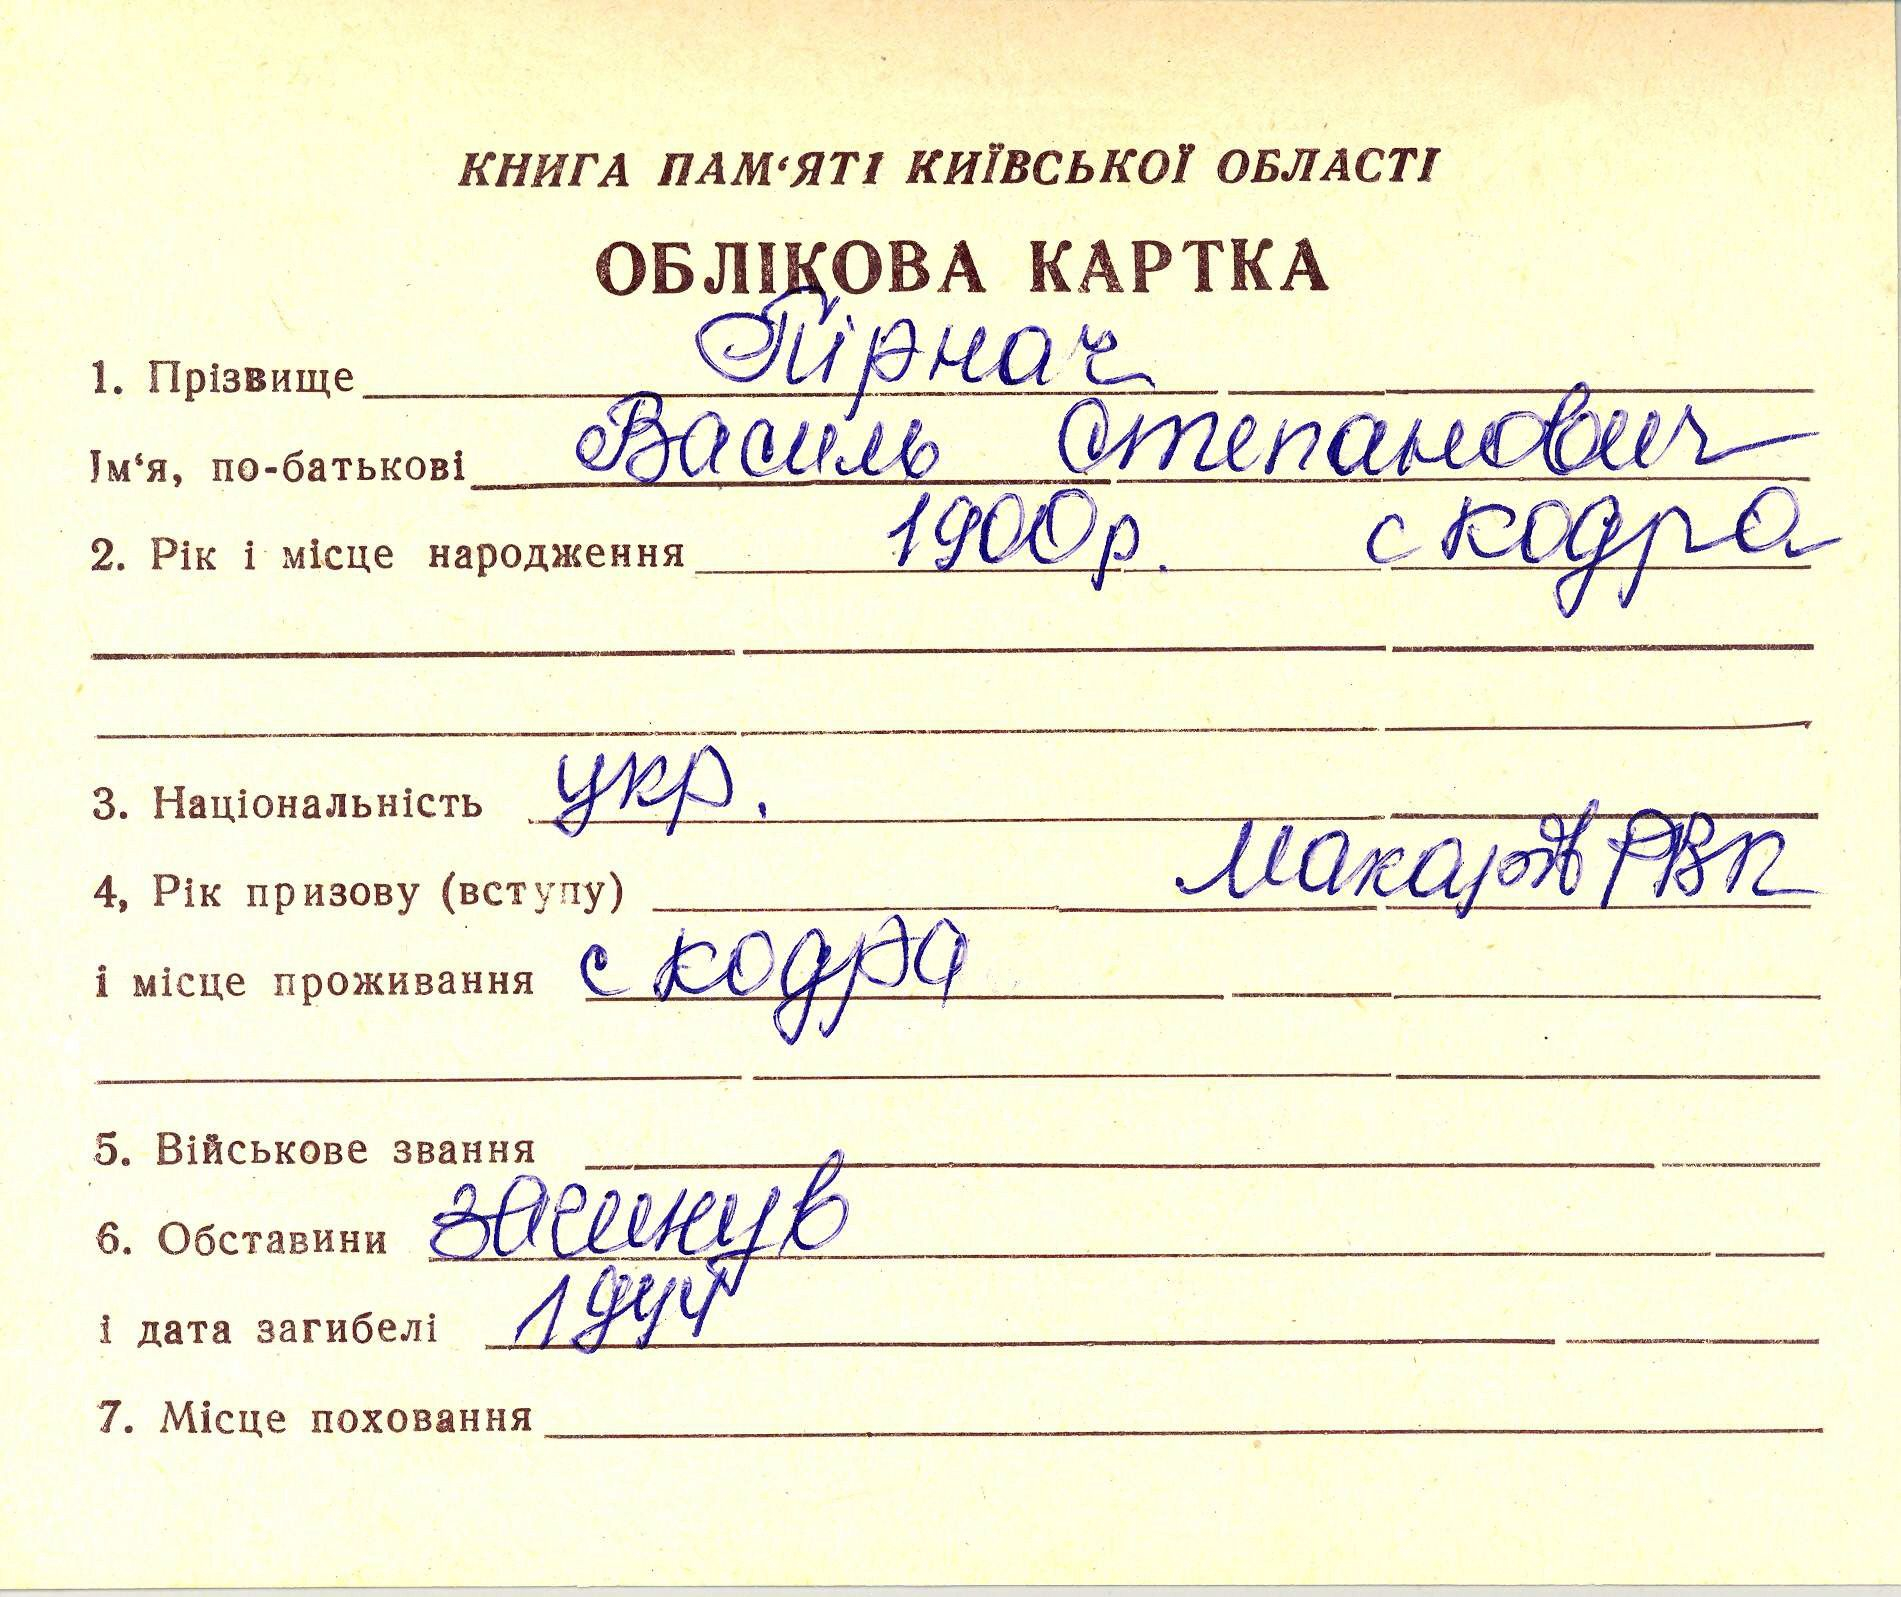 КНИГА ПАМ‘ЯТІ КИЇВСЬКОЇ ОБЛАСТІ
ОБЛІКОВА КАРТКА
1. Прізвище Гірнач
Ім‘я, по-батькові Василь Степанович
2. Рік і місце народження 1900р. с кодра
3. Національність укр.
4, Рік призову (вступу) Макарів РВК
і місце проживання с кодра
5. Військове звання
6. Обставини загинув
і дата загибелі 1944
7. Місце поховання